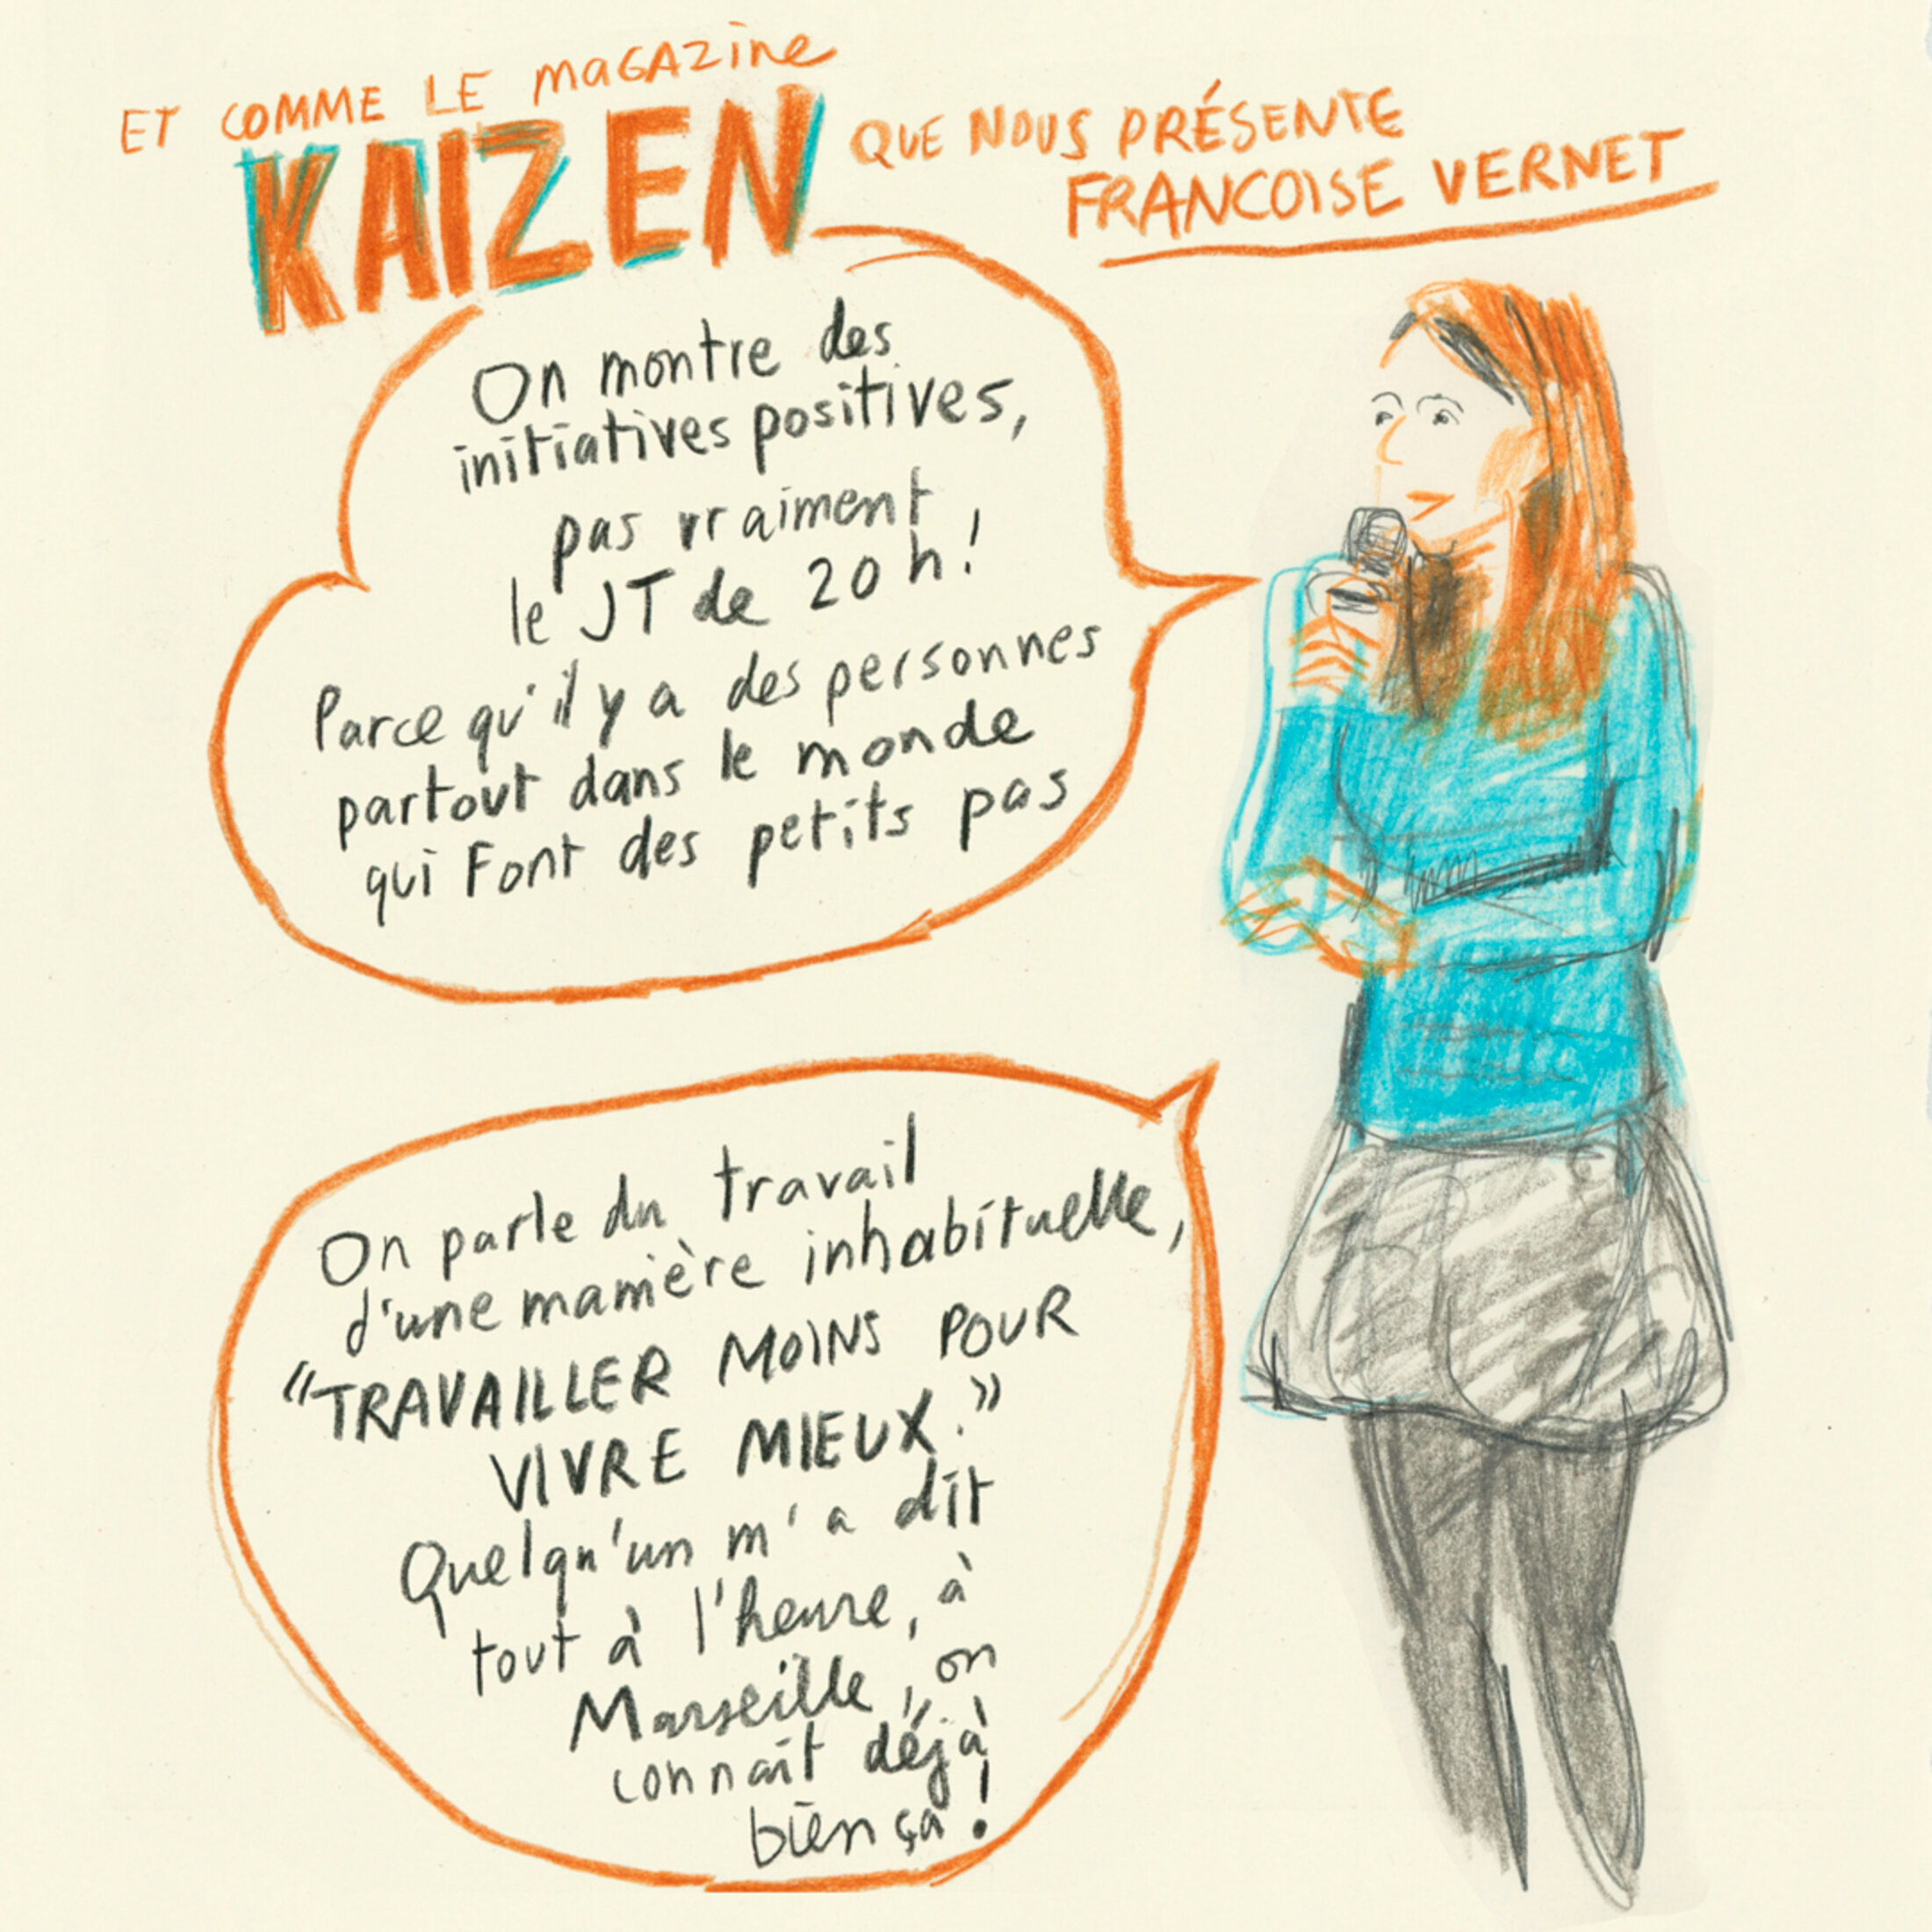 ET COMME LE MAGAZINE
KAIZEN QUE NOUS PRÉSENTE
FRANCOISE VERNET
On montre des
initiatives positives,
pas vraiment
le JT de 20h!
Parce qu'il y a des personnes
partout dans le monde
qui Font des petits pas
On parle du travail
d'une manière inhabituelle,
"TRAVAILLER MOINS POUR
VIVRE MIEUX."
Quelqu'un m'a dit
tout à l'heure, à
Marseille, on
connaît déjà
bien ça!